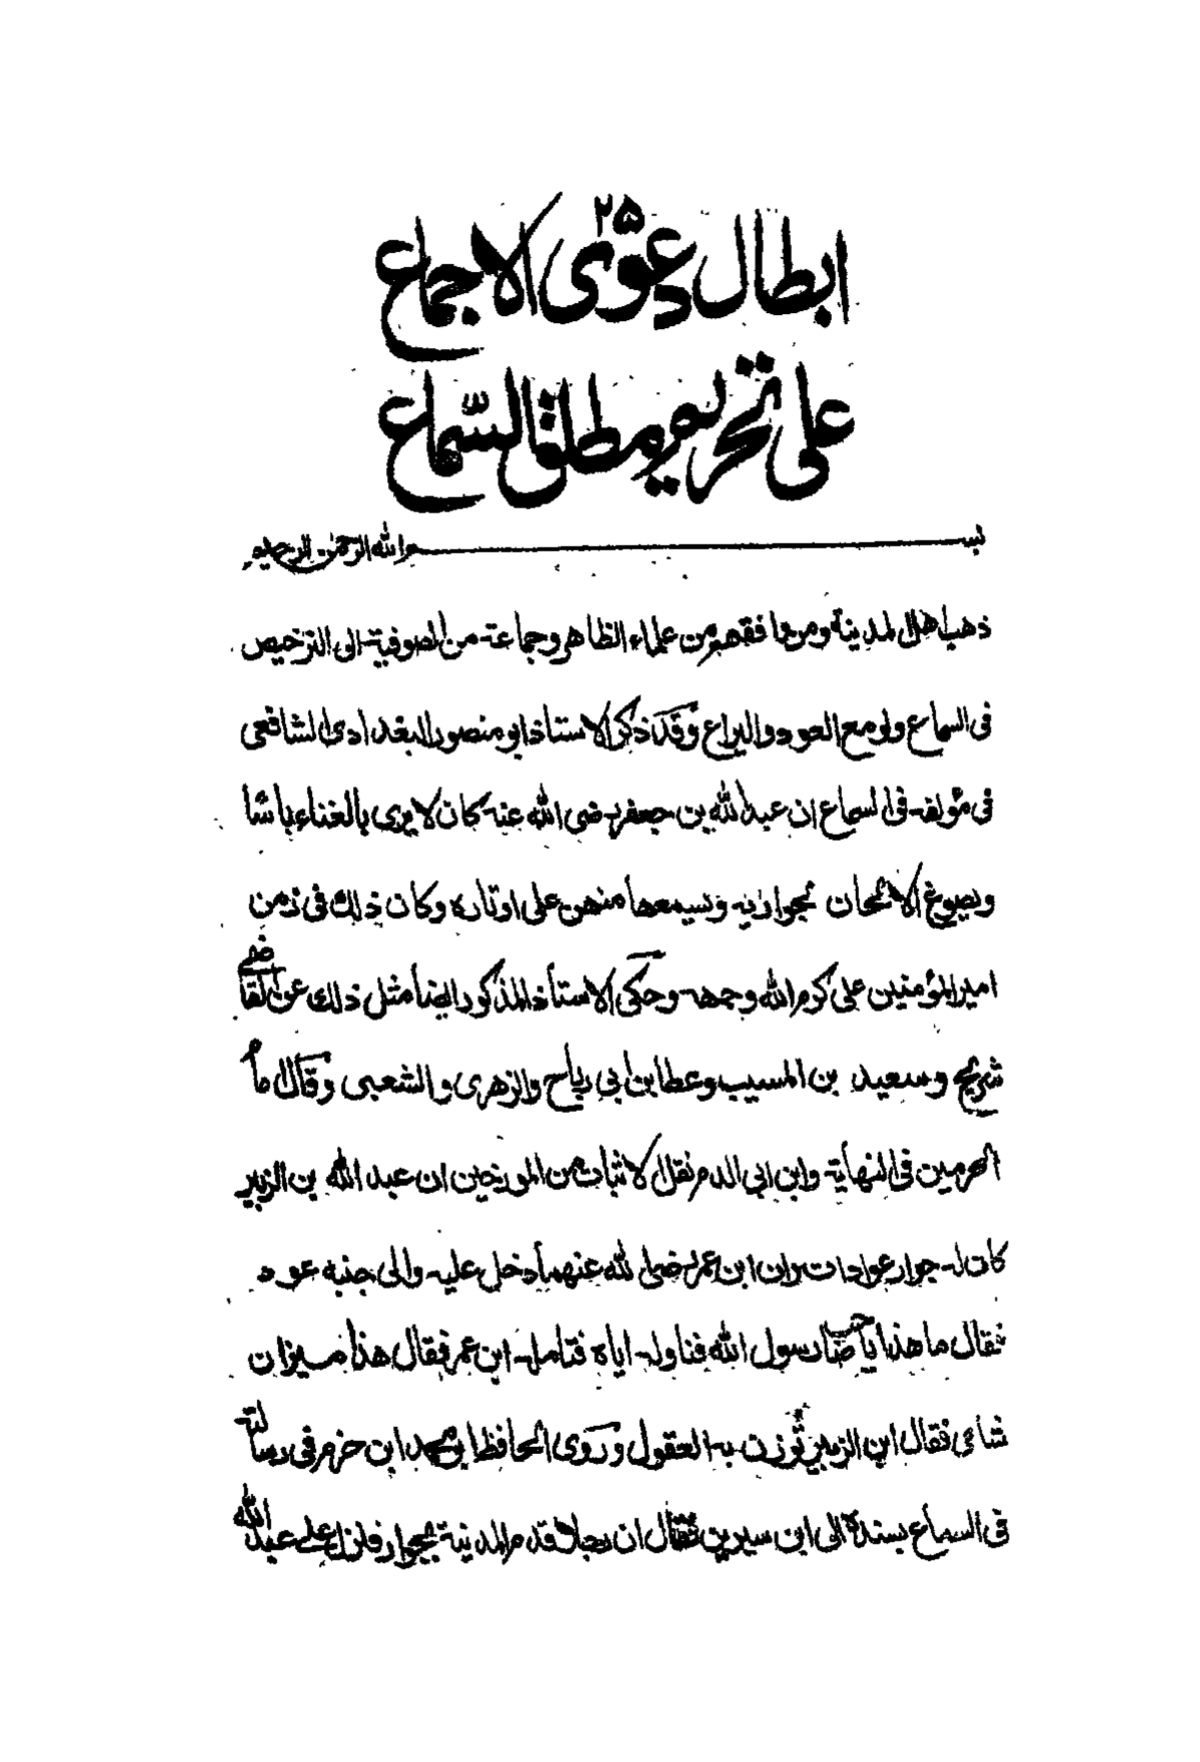 ٢٥
ابطال دعوى الاجماع
على تحريم مطلق السماع
بسم الله الرحمن الرحيم
ذهب اهل المدينة ومن وافقهم من علماء الظاهر وجماعة من الصوفية الى الترخيص
فى السماع ولو مع العود واليراع وقد ذكر الاستاذ ابو منصور البغدادى الشافعى
فى مؤلفه فى السماع ان عبد الله بن جعفر رضى الله عنه كان لا يرى بالغناء باشا
ويصوغ الالحان لجواريه ويسمعها منهن على اوتاره وكان ذلك فى زمن
امير المؤمنين على كرم الله وجهه وحكى الاستاذ المذكور ايضا مثل ذلك عن القاضى
شريح وسعيد بن المسيب وعطا بن ابى رباح والزهرى والشعبى وقال امام
الحرمين فى النهاية وابن ابى الدم نقل الاثبات من المورخين ان عبد الله بن الزبير
كان له جوار عوادات وان ابن عمر رضى الله عنهما دخل عليه والى جنبه عود
فقال ما هذا يا صاحب رسول الله فناوله اياه فتامله ابن عمر فقال هذا ميزان
شامى فقال ابن الزبير توزن به العقول وروى الحافظ ابو محمد ابن حزم فى رسالته
فى السماع بسنده الى ابن سيرين فقال ان رجلا قدم المدينة بجوار فنزل على عبد الله